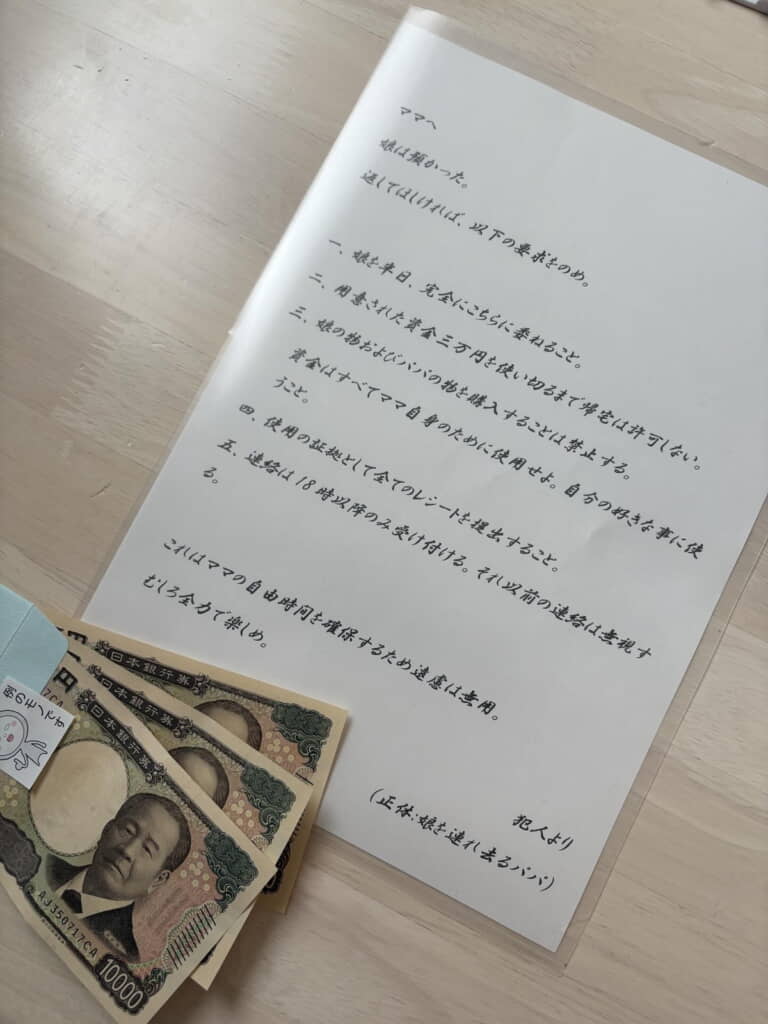 ママへ
娘は預かった。
返してほしければ、以下の要求をのめ。
一、娘を半日、完全にこちらに委ねること。
二、用意された資金三万円を使い切るまで帰宅は許可しない。
三、娘の物およびパパの物を購入することは禁止する。
資金はすべてママ自身のために使用せよ。自分の好きな事に使
うこと。
四、使用の証拠として全てのレシートを提出すること。
五、連絡は18時以降のみ受け付ける。それ以前の連絡は無視す
る。
これはママの自由時間を確保するため遠慮は無用。
むしろ全力で楽しめ。
犯人より
(正体:娘を連れ去るパパ)
例のモノです
日本銀行券
日本銀行券
日本銀行券
AJ350717CA
10000